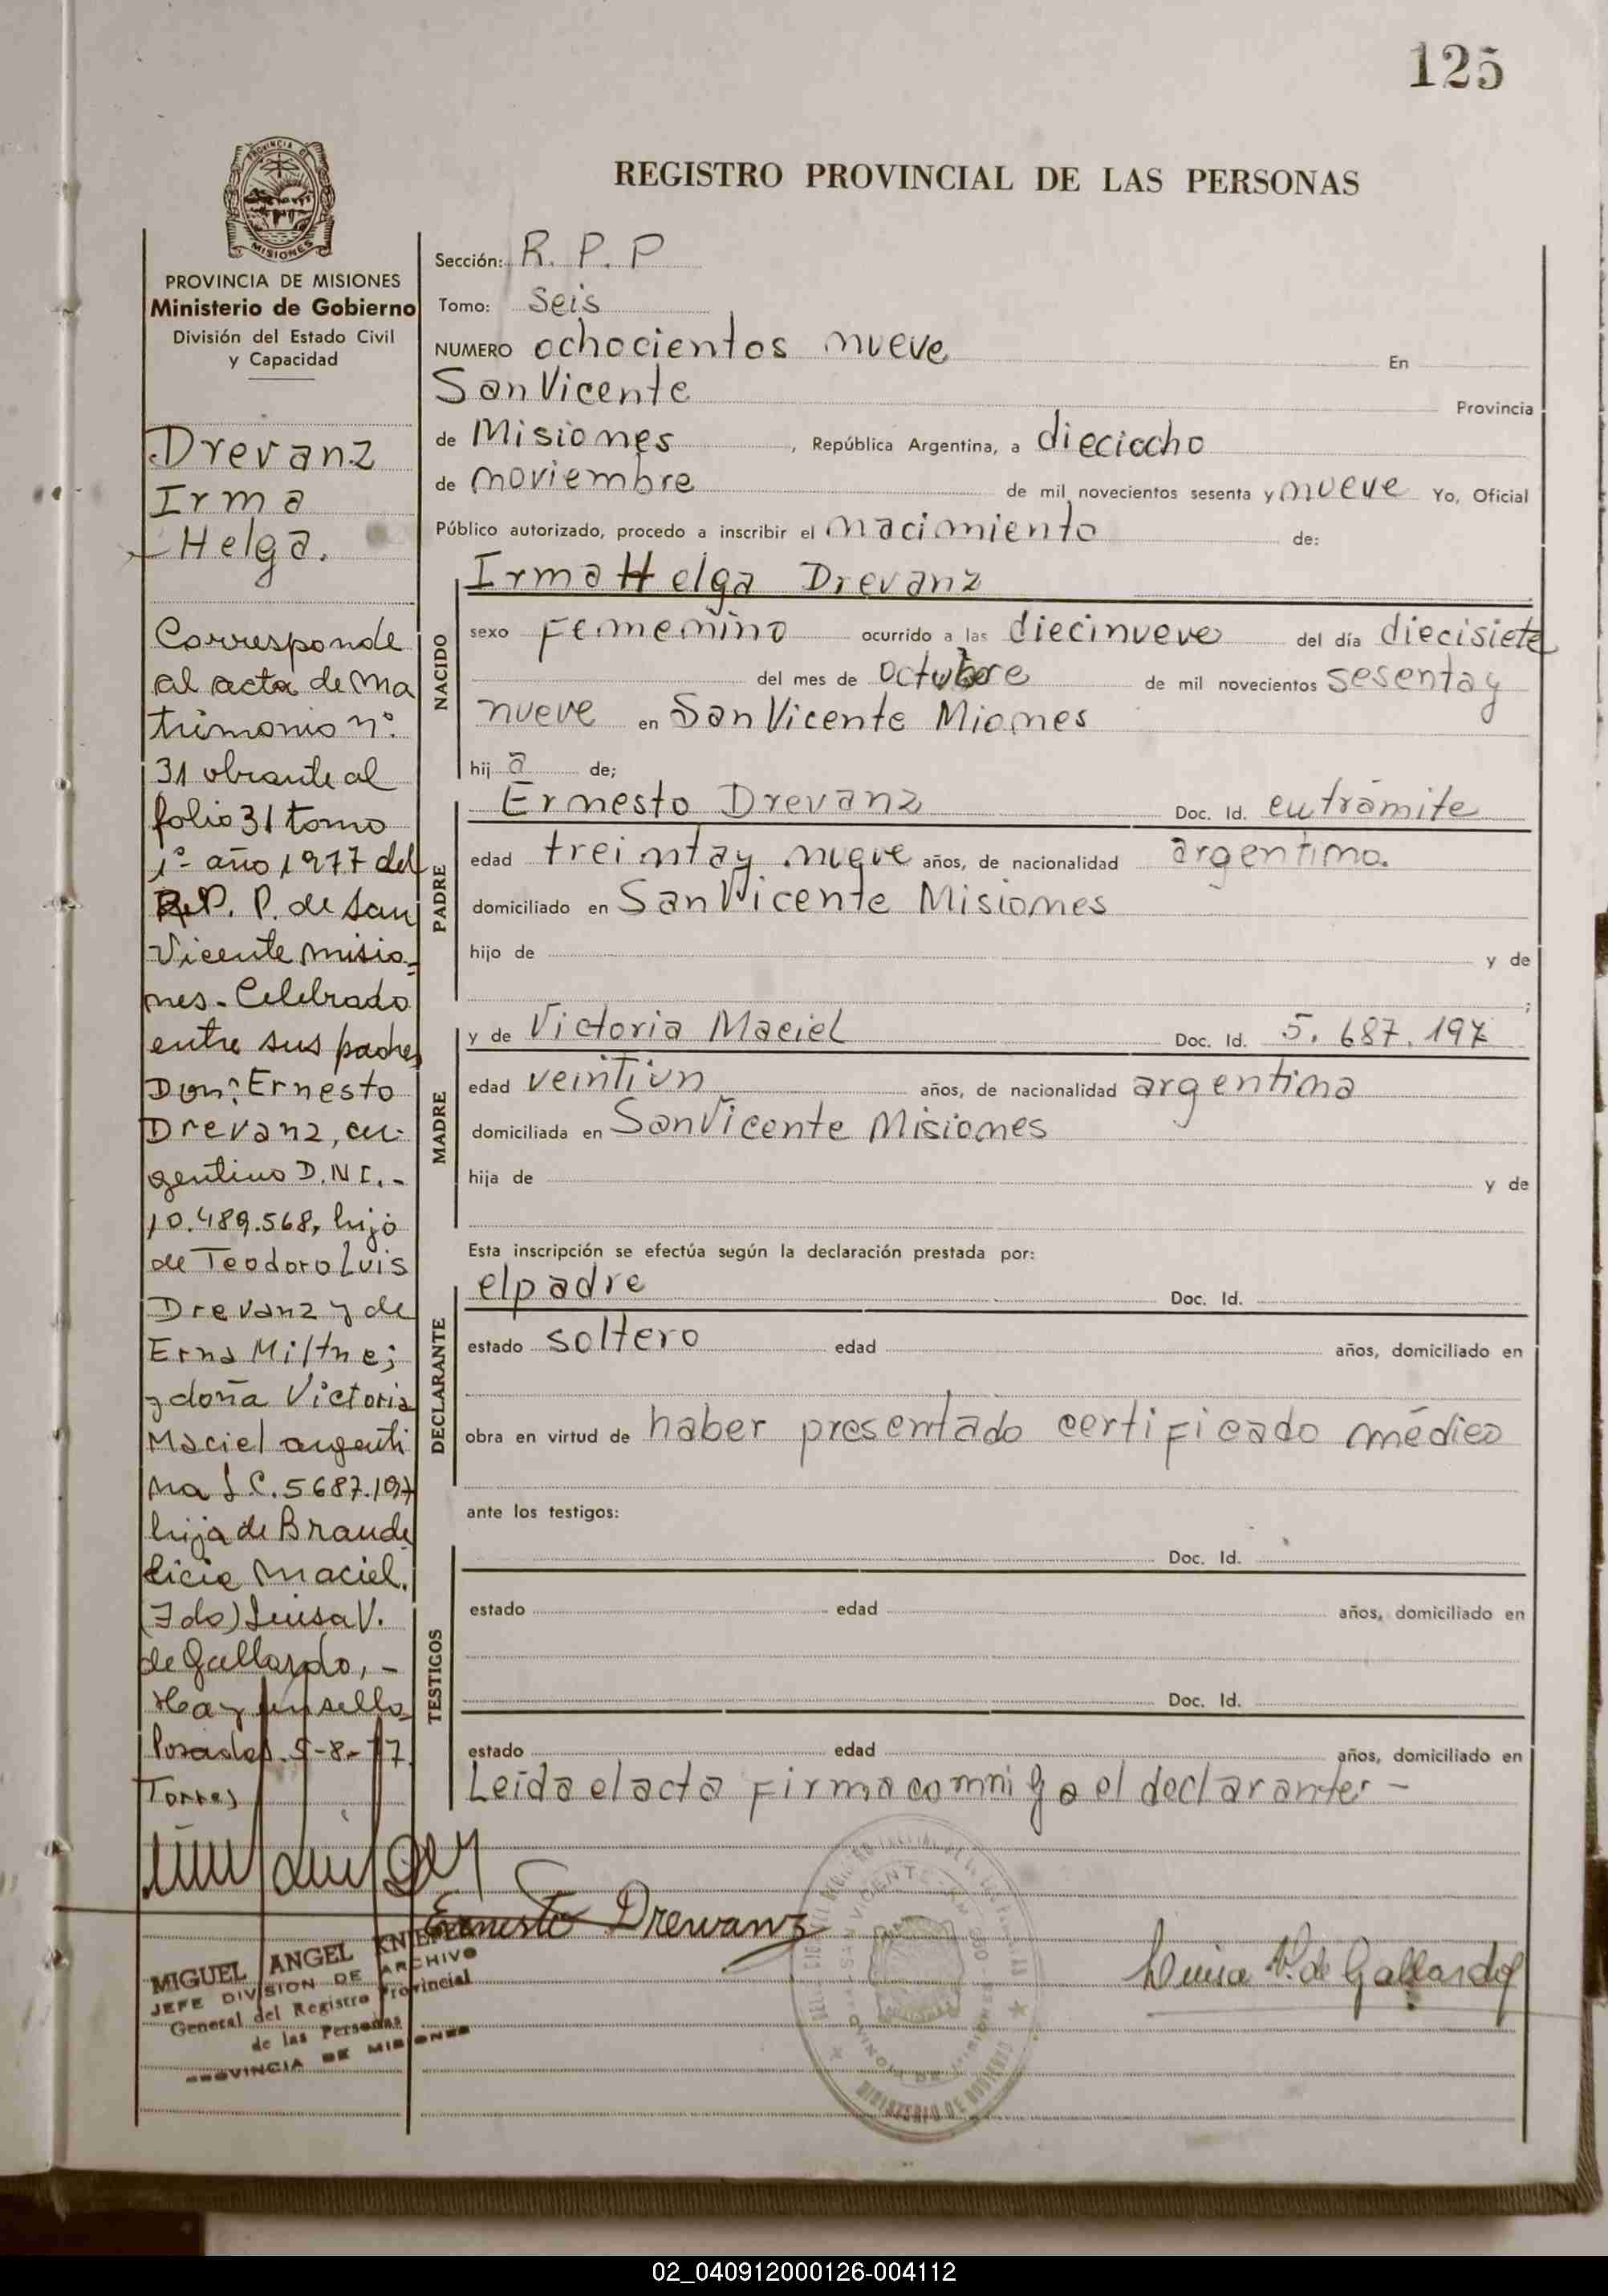 125
PROVINCIA DE
MISIONES
PROVINCIA DE MISIONES
Ministerio de Gobierno
División del Estado Civil
y Capacidad
Drevanz
Irma
Helga.
Corresponde
al acta de ma
trimonio nº
31 obrante al
folio 31 tomo
1º año 1977 del
R.P. P. de San
Vicente misio-
nes. Celebrado
entre sus padres
Don: Ernesto
Drevanz, ar-
gentino D.N.I.-
10.489.568, hijo
de Teodoro Luis
Drevanz y de
Erna Miltne;
y doña Victoria
Maciel argenti
na L.C. 5687.197
hija de Brande
licie Maciel.
(Fdo) Luisa V.
de Gallardo, -
Hay un sello
Posadas. 5-8-77.
Torres
MIGUEL ANGEL
JEFE DIVISION DE ARCHIVO
General del Registro Provincial
de las Personas
PROVINCIA DE MISIONES
REGISTRO PROVINCIAL DE LAS PERSONAS
Sección: R. P. P
Tomo: Seis
NUMERO ochocientos nueve En
San Vicente Provincia
de Misiones , República Argentina, a dieciocho
de noviembre de mil novecientos sesenta y nueve Yo, Oficial
Público autorizado, procedo a inscribir el nacimiento de:
NACIDO
Irma Helga Drevanz
sexo Femenino ocurrido a las diecinueve del día diecisiete
del mes de octubre de mil novecientos sesenta y
nueve en San Vicente Miones
hij a de;
PADRE
Ernesto Drevanz Doc. Id. en trámite
edad treinta y nueve años, de nacionalidad argentino.
domiciliado en San Vicente Misiones
hijo de y de
;
MADRE
y de Victoria Maciel Doc. Id. 5.687.197
edad veintiun años, de nacionalidad argentina
domiciliada en San Vicente Misiones
hija de y de
Esta inscripción se efectúa según la declaración prestada por:
DECLARANTE
el padre Doc. Id.
estado soltero edad años, domiciliado en
obra en virtud de haber presentado certificado médico
ante los testigos:
TESTIGOS
Doc. Id.
estado edad años, domiciliado en
Doc. Id.
estado edad años, domiciliado en
Leída el acta firma conmigo el declarante. -
Ernesto Drewanz
Luisa V. de Gallardo
SAN VICENTE
MINISTERIO DE GOBIERNO
02_040912000126-004112